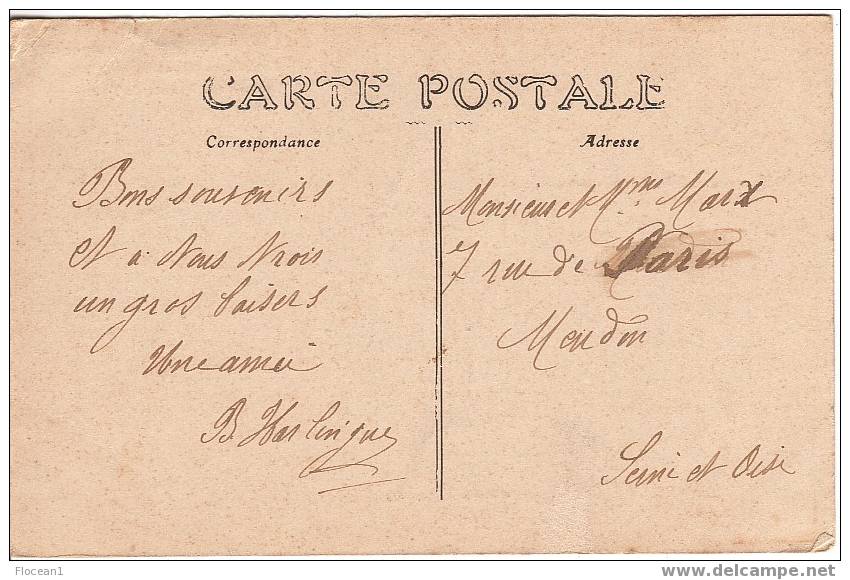 CARTE POSTALE
Correspondance
Adresse
Bons souvenirs
et à vous trois
un gros baisers
Une amie
B. Harlingue
Monsieur et Mme Marx
7 rue de Paris
Meudon
Seine et Oise
Flocean1
delcampe.net